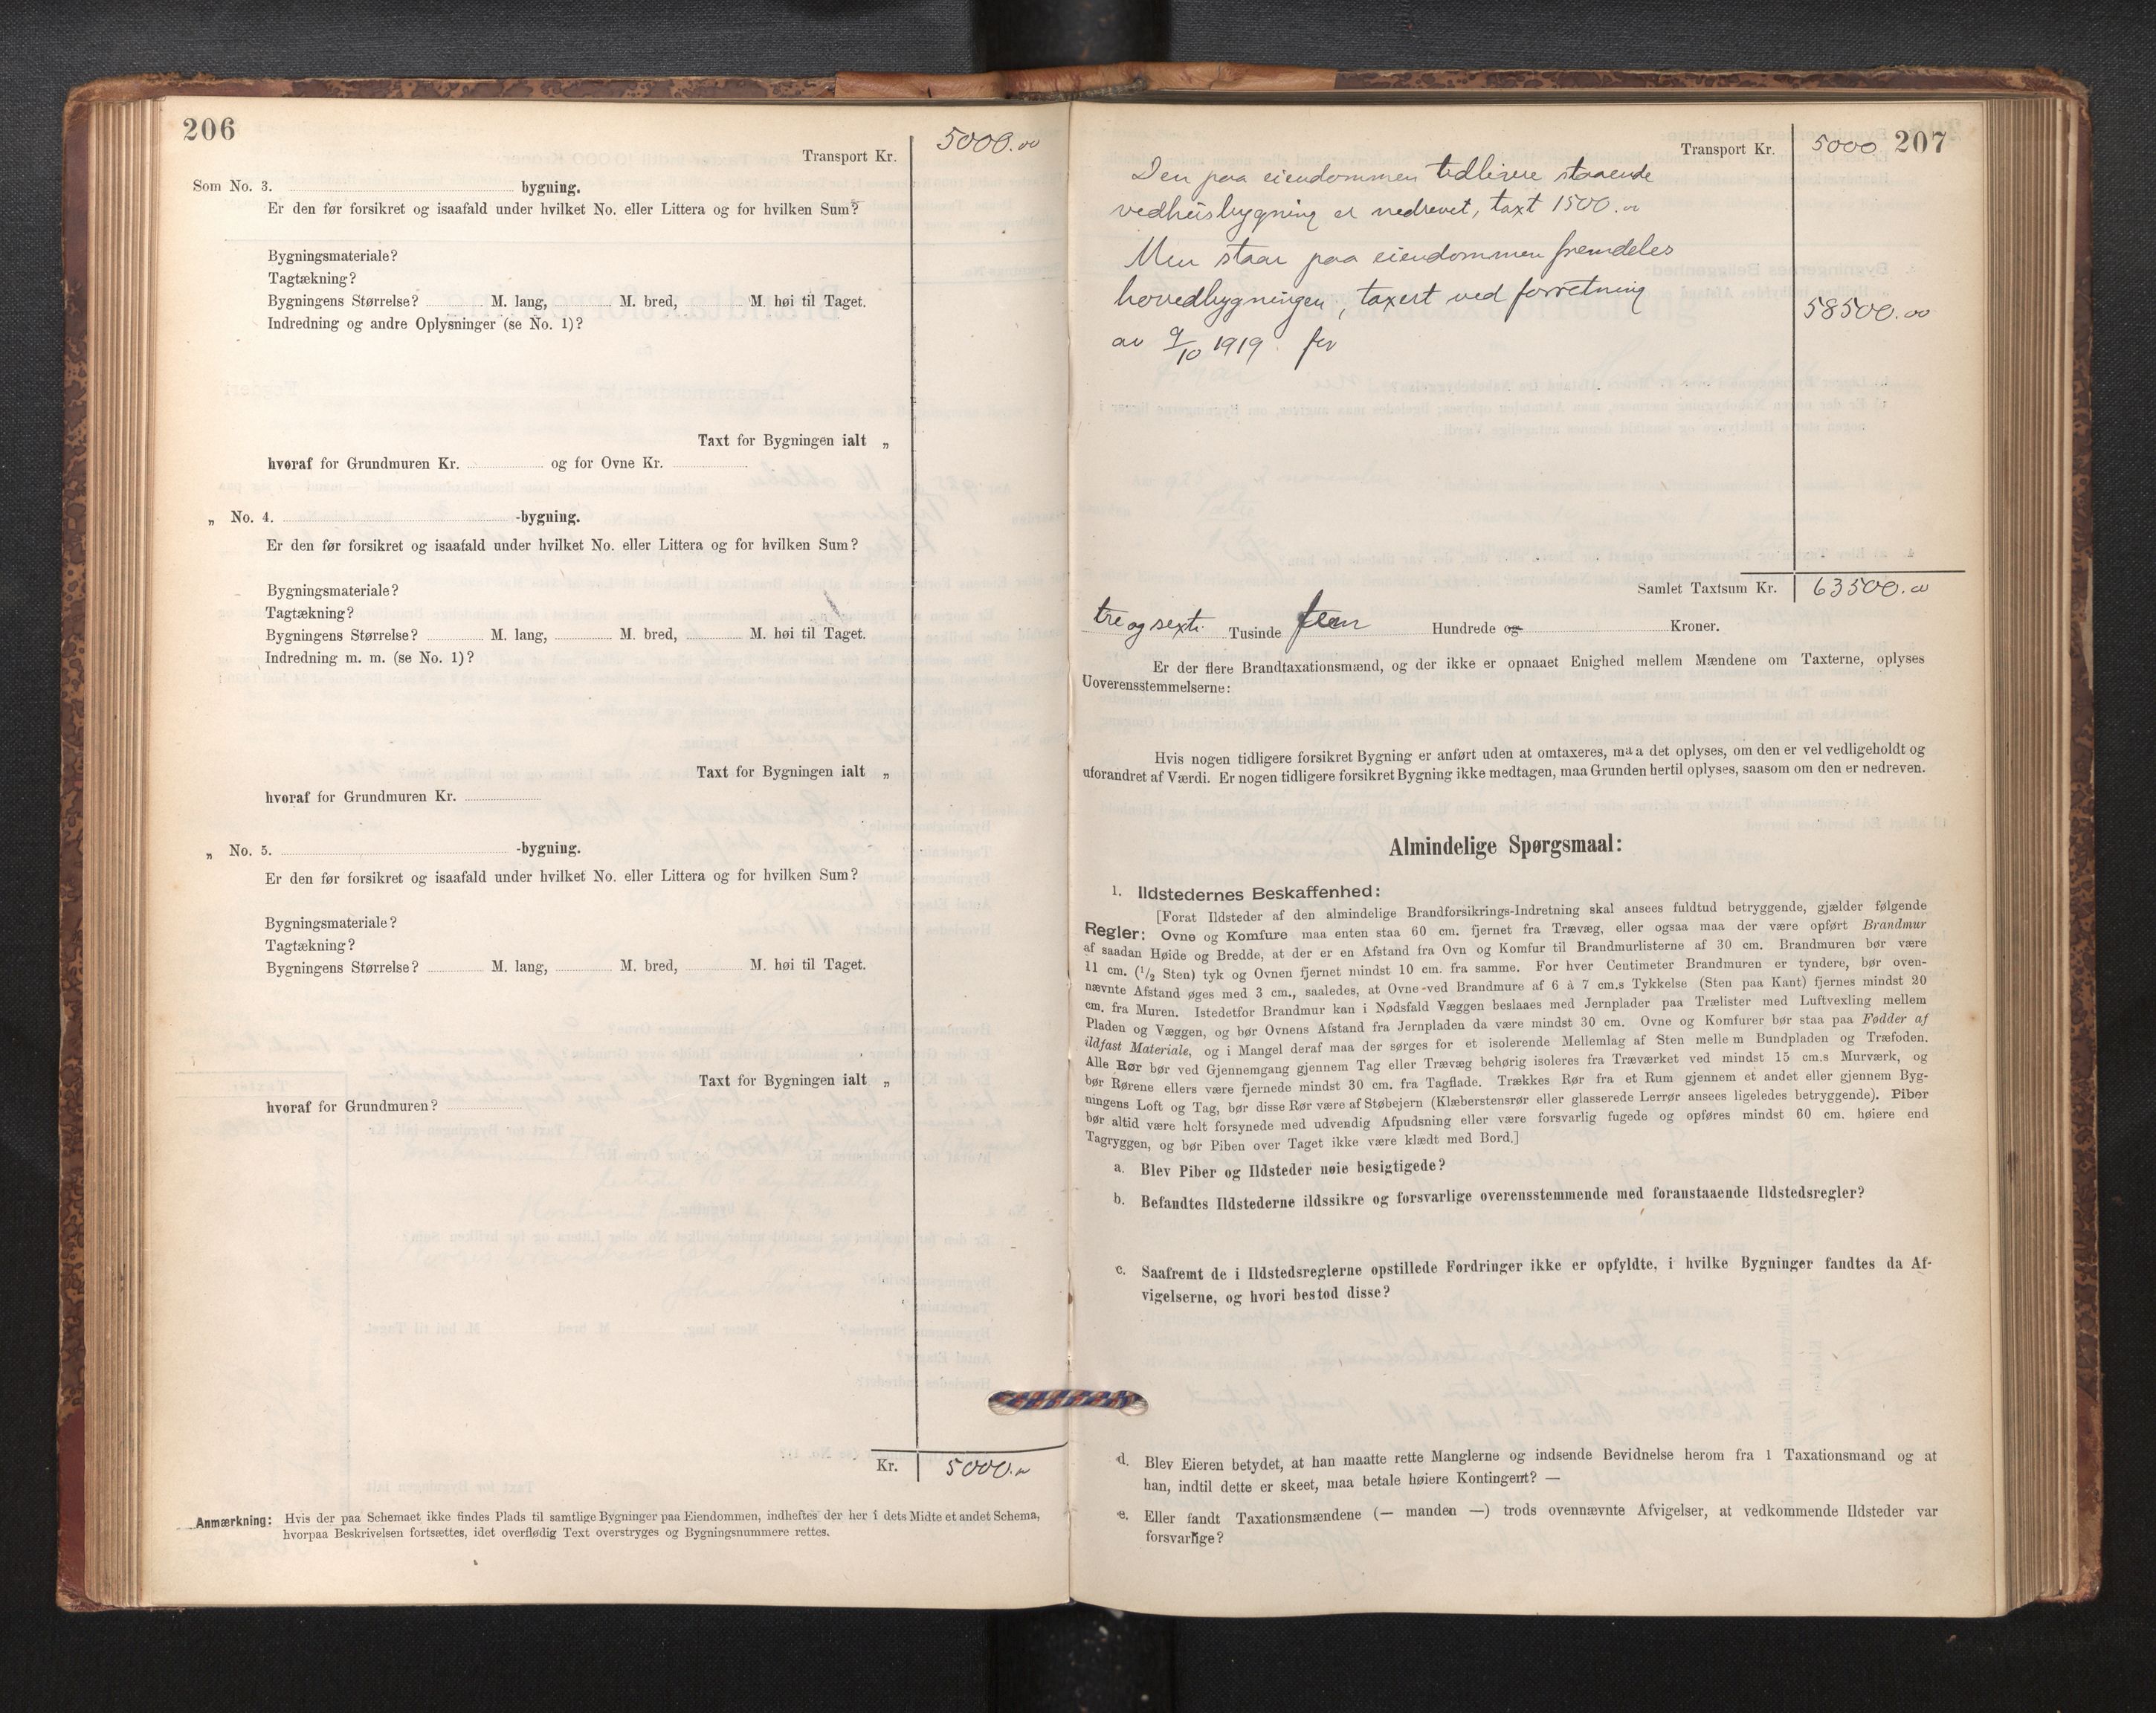 206
Transport Kr. 5000.00
Som No. 3. bygning.
Er den før forsikret og isaafald under hvilket No. eller Littera og for hvilken Sum?
Bygningsmateriale?
Tagtækning?
Bygningens Størrelse? M. lang, M. bred, M. høi til Taget.
Indredning og andre Oplysninger (se No. 1)?
Taxt for Bygningen ialt „
hvoraf for Grundmuren Kr. og for Ovne Kr.
„ No. 4. -bygning.
Er den før forsikret og isaafald under hvilket No. eller Littera og for hvilken Sum?
Bygningsmateriale?
Tagtækning?
Bygningens Størrelse? M. lang, M. bred, M. høi til Taget.
Indredning m. m. (se No. 1)?
Taxt for Bygningen ialt „
hvoraf for Grundmuren Kr.
„ No. 5. -bygning.
Er den før forsikret og isaafald under hvilket No. eller Littera og for hvilken Sum?
Bygningsmateriale?
Tagtækning?
Bygningens Størrelse? M. lang, M. bred, M. høi til Taget.
Taxt for Bygningen ialt „
hvoraf for Grundmuren?
Kr. 5000.00
Anmærkning: Hvis der paa Schemaet ikke findes Plads til samtlige Bygninger paa Eiendommen, indheftes der her i dets Midte et andet Schema,
hvorpaa Beskrivelsen fortsættes, idet overflødig Text overstryges og Bygningsnummere rettes.
Transport Kr. 5000 207
Den paa eiendommen tidligere staaende
vedhusbygning er nedrevet, taxt 1500.00
Men staar paa eiendommen fremdeles
hovedbygningen, taxert ved forretning
av 9/10 1919 for 58500.00
Samlet Taxtsum Kr. 63500.00
tre og sexti Tusinde fem Hundrede og Kroner.
Er der flere Brandtaxationsmænd, og der ikke er opnaaet Enighed mellem Mændene om Taxterne, oplyses
Uoverensstemmelserne:
Hvis nogen tidligere forsikret Bygning er anført uden at omtaxeres, maa det oplyses, om den er vel vedligeholdt og
uforandret af Værdi. Er nogen tidligere forsikret Bygning ikke medtagen, maa Grunden hertil oplyses, saasom om den er nedreven.
Almindelige Spørgsmaal:
1. Ildstedernes Beskaffenhed:
[Forat Ildsteder af den almindelige Brandforsikrings-Indretning skal ansees fuldtud betryggende, gjælder følgende
Regler: Ovne og Komfure maa enten staa 60 cm. fjernet fra Trævæg, eller ogsaa maa der være opført Brandmur
af saadan Høide og Bredde, at der er en Afstand fra Ovn og Komfur til Brandmurlisterne af 30 cm. Brandmuren bør være
11 cm. (1/2 Sten) tyk og Ovnen fjernet mindst 10 cm. fra samme. For hver Centimeter Brandmuren er tyndere, bør oven-
nævnte Afstand øges med 3 cm., saaledes, at Ovne ved Brandmure af 6 à 7 cm.s Tykkelse (Sten paa Kant) fjernes mindst 20
cm. fra Muren. Istedetfor Brandmur kan i Nødsfald Væggen beslaaes med Jernplader paa Trælister med Luftvexling mellem
Pladen og Væggen, og bør Ovnens Afstand fra Jernpladen da være mindst 30 cm. Ovne og Komfurer bør staa paa Fødder af
ildfast Materiale, og i Mangel deraf maa der sørges for et isolerende Mellemlag af Sten mellem Bundpladen og Træfoden.
Alle Rør bør ved Gjennemgang gjennem Tag eller Trævæg behørig isoleres fra Træværket ved mindst 15 cm.s Murværk, og
bør Rørene ellers være fjernede mindst 30 cm. fra Tagflade. Trækkes Rør fra et Rum gjennem et andet eller gjennem Byg-
ningens Loft og Tag, bør disse Rør være af Støbejern (Klæberstensrør eller glasserede Lerrør ansees ligeledes betryggende). Piber
bør altid være helt forsynede med udvendig Afpudsning eller være forsvarlig fugede og opføres mindst 60 cm. høiere end
Tagryggen, og bør Piben over Taget ikke være klædt med Bord.]
a. Blev Piber og Ildsteder nøie besigtigede?
b. Befandtes Ildstederne ildssikre og forsvarlige overensstemmende med foranstaaende Ildstedsregler?
c. Saafremt de i Ildstedsreglerne opstillede Fordringer ikke er opfyldte, i hvilke Bygninger fandtes da Af-
vigelserne, og hvori bestod disse?
d. Blev Eieren betydet, at han maatte rette Manglerne og indsende Bevidnelse herom fra 1 Taxationsmand og at
han, indtil dette er skeet, maa betale høiere Kontingent? —
e. Eller fandt Taxationsmændene (— manden —) trods ovennævnte Afvigelser, at vedkommende Ildsteder var
forsvarlige?